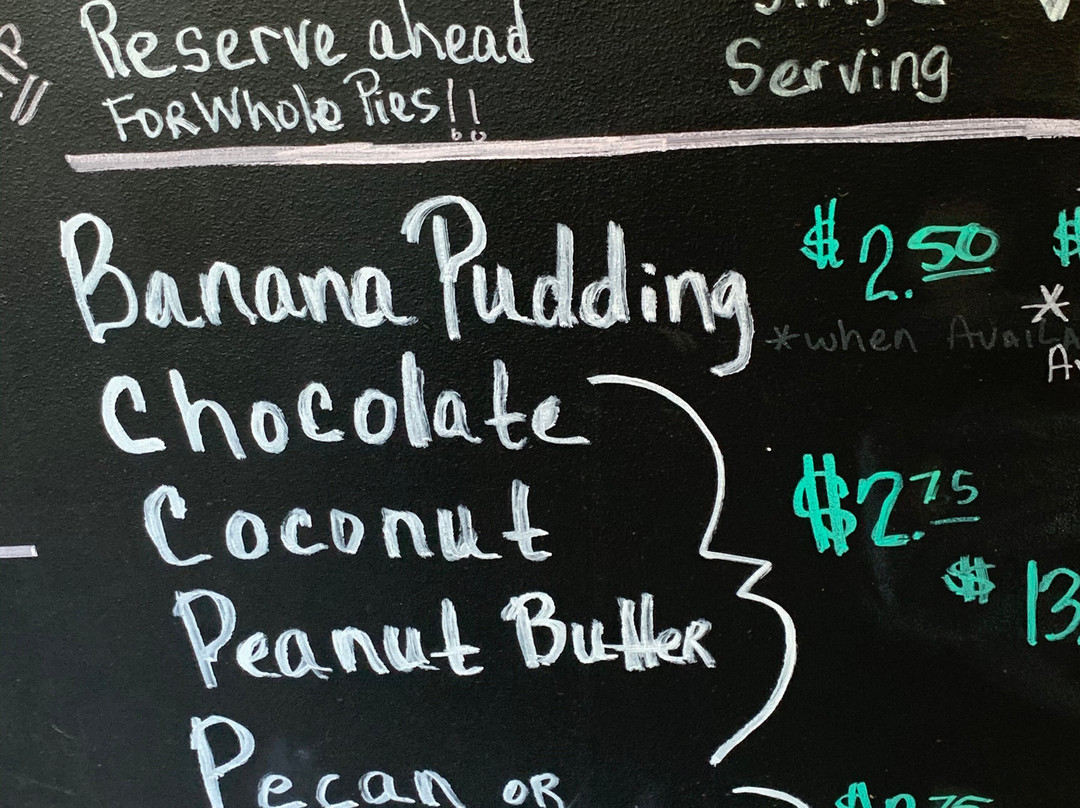 Reserve ahead
FOR Whole Pies!!
Serving
Banana Pudding $2.50 $
*when AVAILA
*
Av
Chocolate
Coconut $2.75
$13
Peanut Butter
Pecan OR